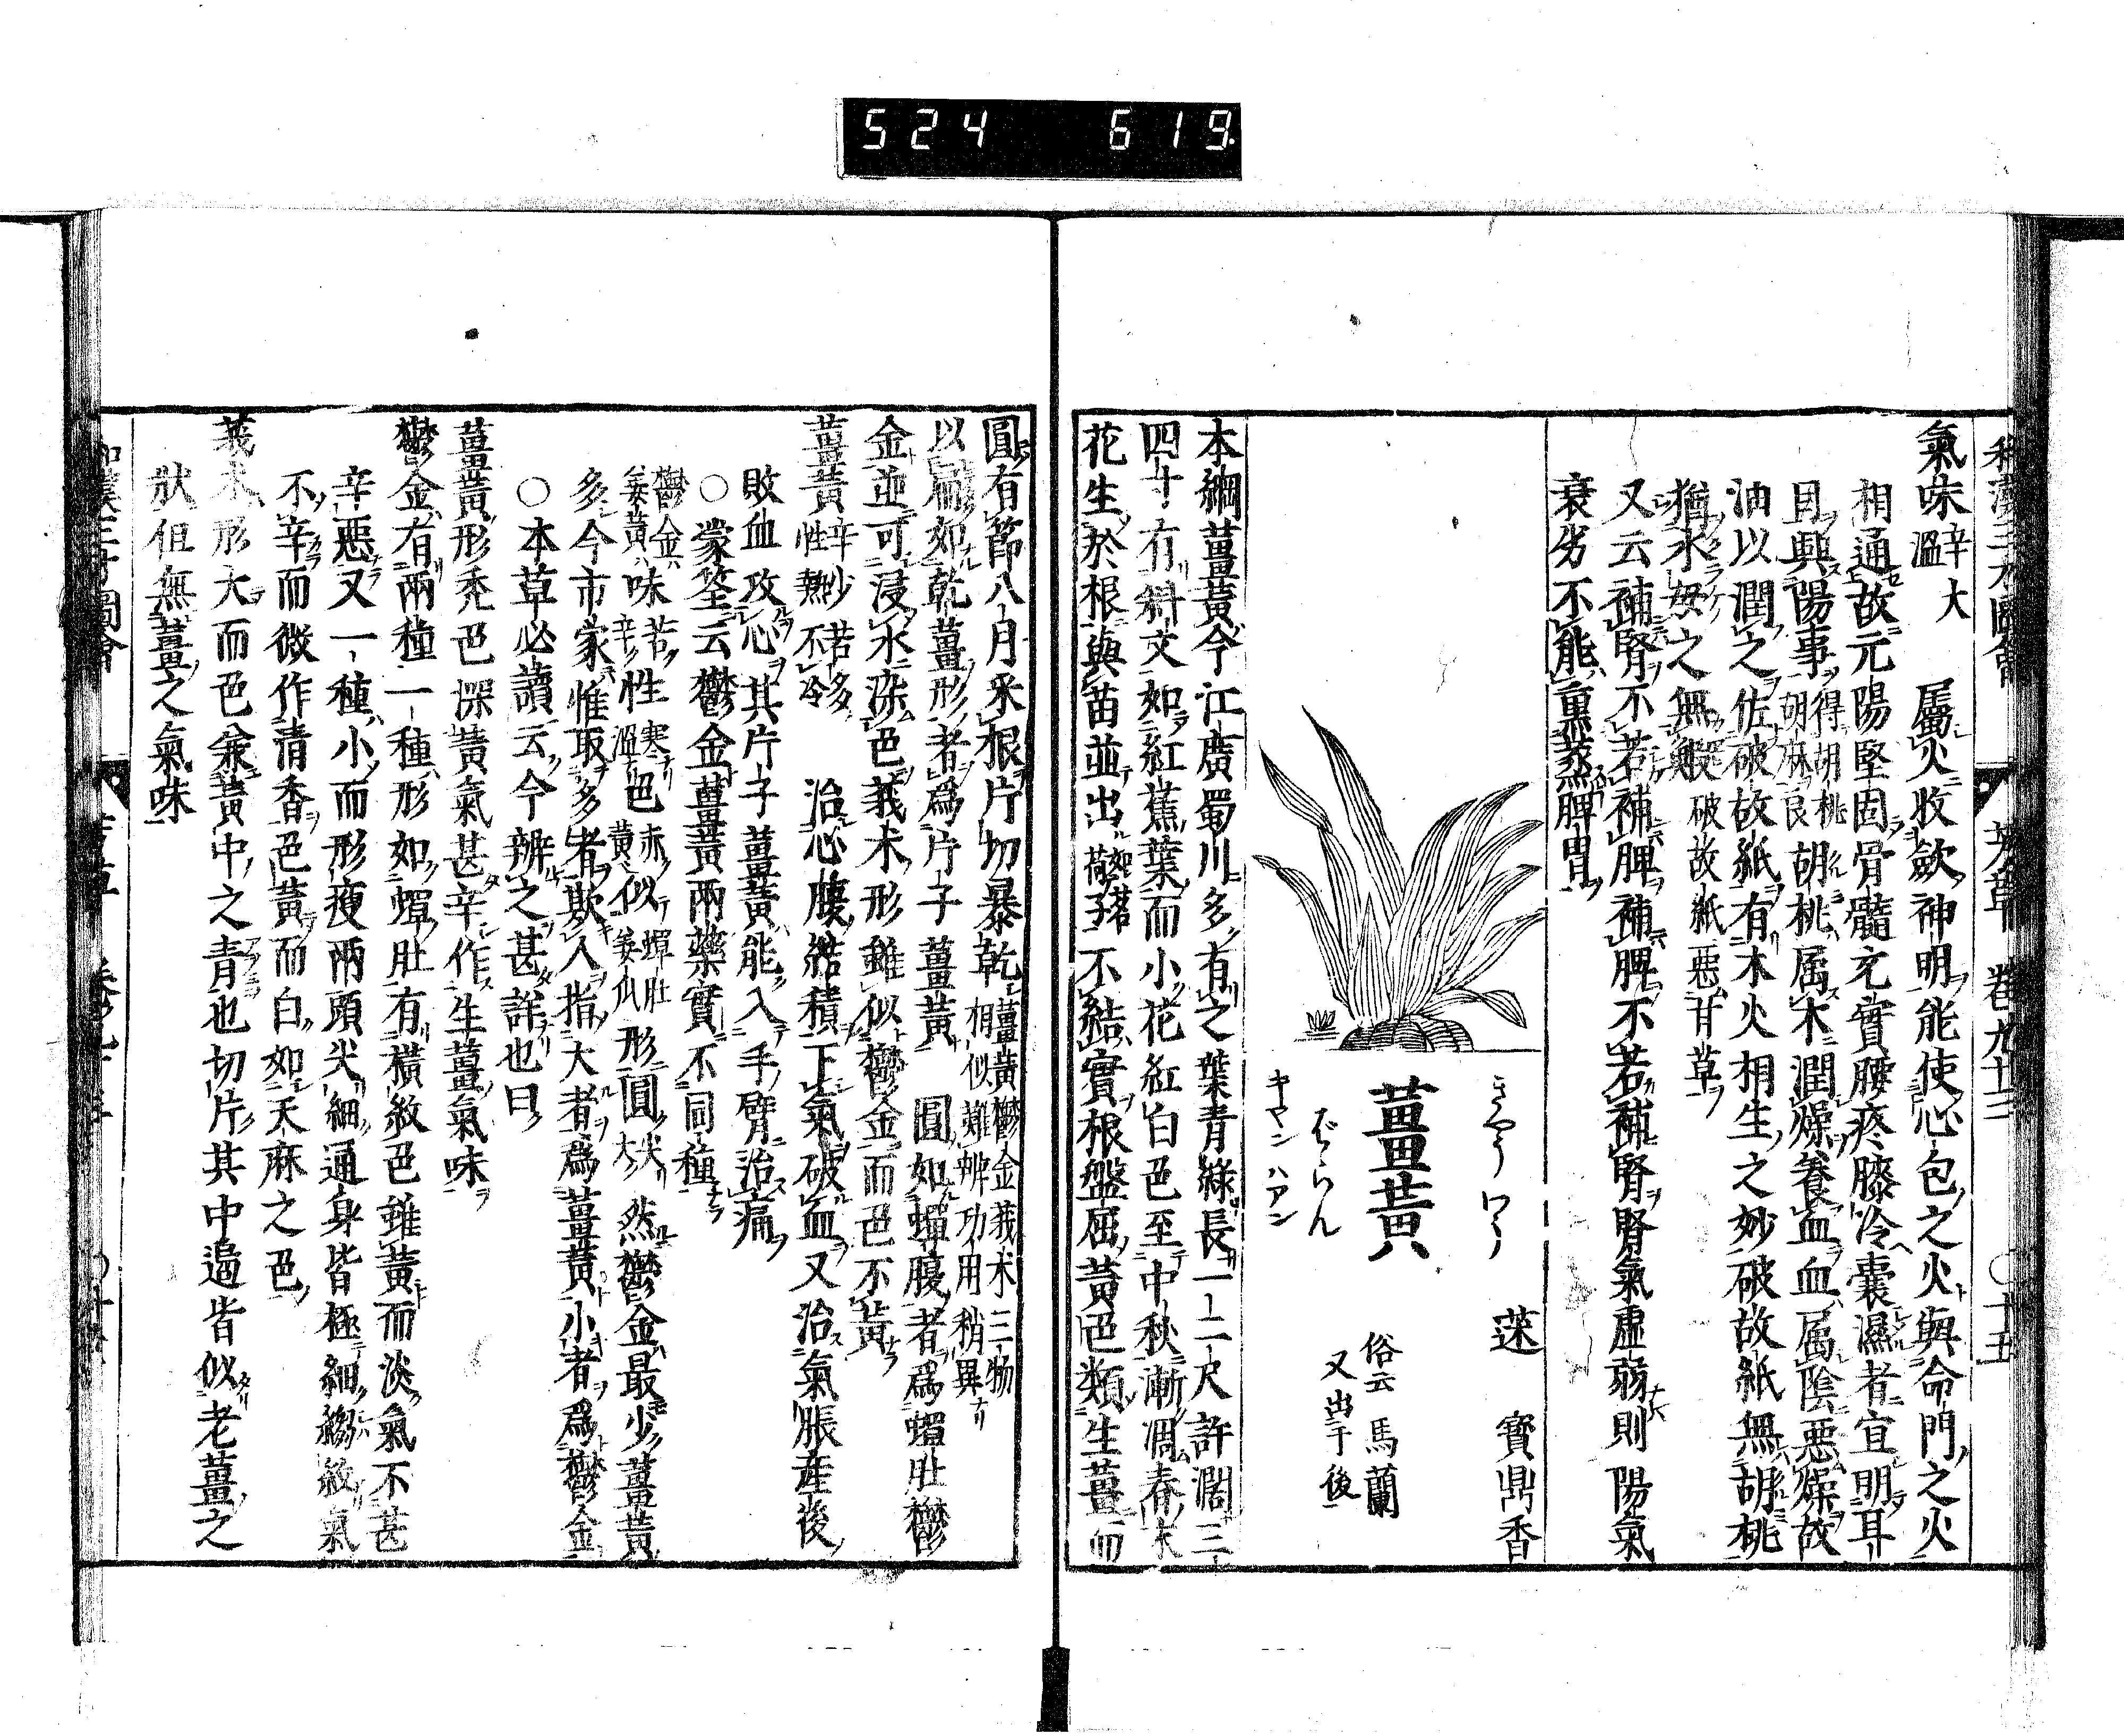 524 619
和漢三才圖會 芳草 卷九十三 ○十五
氣味 辛大溫 屬火收斂神明能使心包之火與命門之火
相通故元陽堅固骨髓充實腰疼膝冷囊濕者宜明耳
目興陽事 得胡桃胡麻良 胡桃属木潤燥養血血属陰惡燥故
油以潤之佐破故紙有木火相生之妙破故紙無胡桃
猶水母之無鰕 破故紙惡甘草
又云補腎不若補脾補脾不若補腎腎氣虛弱則陽氣
衰劣不能熏蒸脾胃
きやうわう
薑黃
ばらん
キヤン ハアン
蒁 寳鼎香
俗云馬蘭
又出于後
本綱薑黃今江廣蜀川多有之葉青綠長一二尺許濶三
四寸有斜文如紅蕉葉而小花紅白色至中秋漸凋春末
花生於根與苗並出 如茗荷子 不結實根盤屈黃色類生薑而
圓有節八月采根片切暴乾 薑黃鬱金莪朮三物相似難辨功用稍異
以扁如乾薑形者爲片子薑黃 圓如蟬腹者爲蟬肚鬱
金並可浸水染色莪朮形雖似鬱金而色不黃
薑黃 辛少苦多性熱不冷 治心腹結積下氣破血又治氣脹産後
敗血攻心其片子薑黃能入手臂治痛
○蒙筌云鬱金薑黃兩藥實不同種
鬱金 味苦 性寒 色赤 似蟬肚 形圓尖
姜黃 辛 溫 黃 姜瓜 大 然鬱金最少薑黃
多今市家惟取多者欺人指大者爲薑黃小者爲鬱金
○本草必讀云今辨之甚詳也曰
薑黃形禿色深黃氣甚辛作生薑氣味
鬱金有兩種一種形如蟬肚有橫紋色雖黃而淡氣不甚
辛惡又一種小而形瘦兩頭尖細通身皆極細縐紋氣
不辛而微作清香色黃而白如天麻之色
莪朮形大而色兼黃中之青也切片其中遍皆似老薑之
狀但無薑之氣味